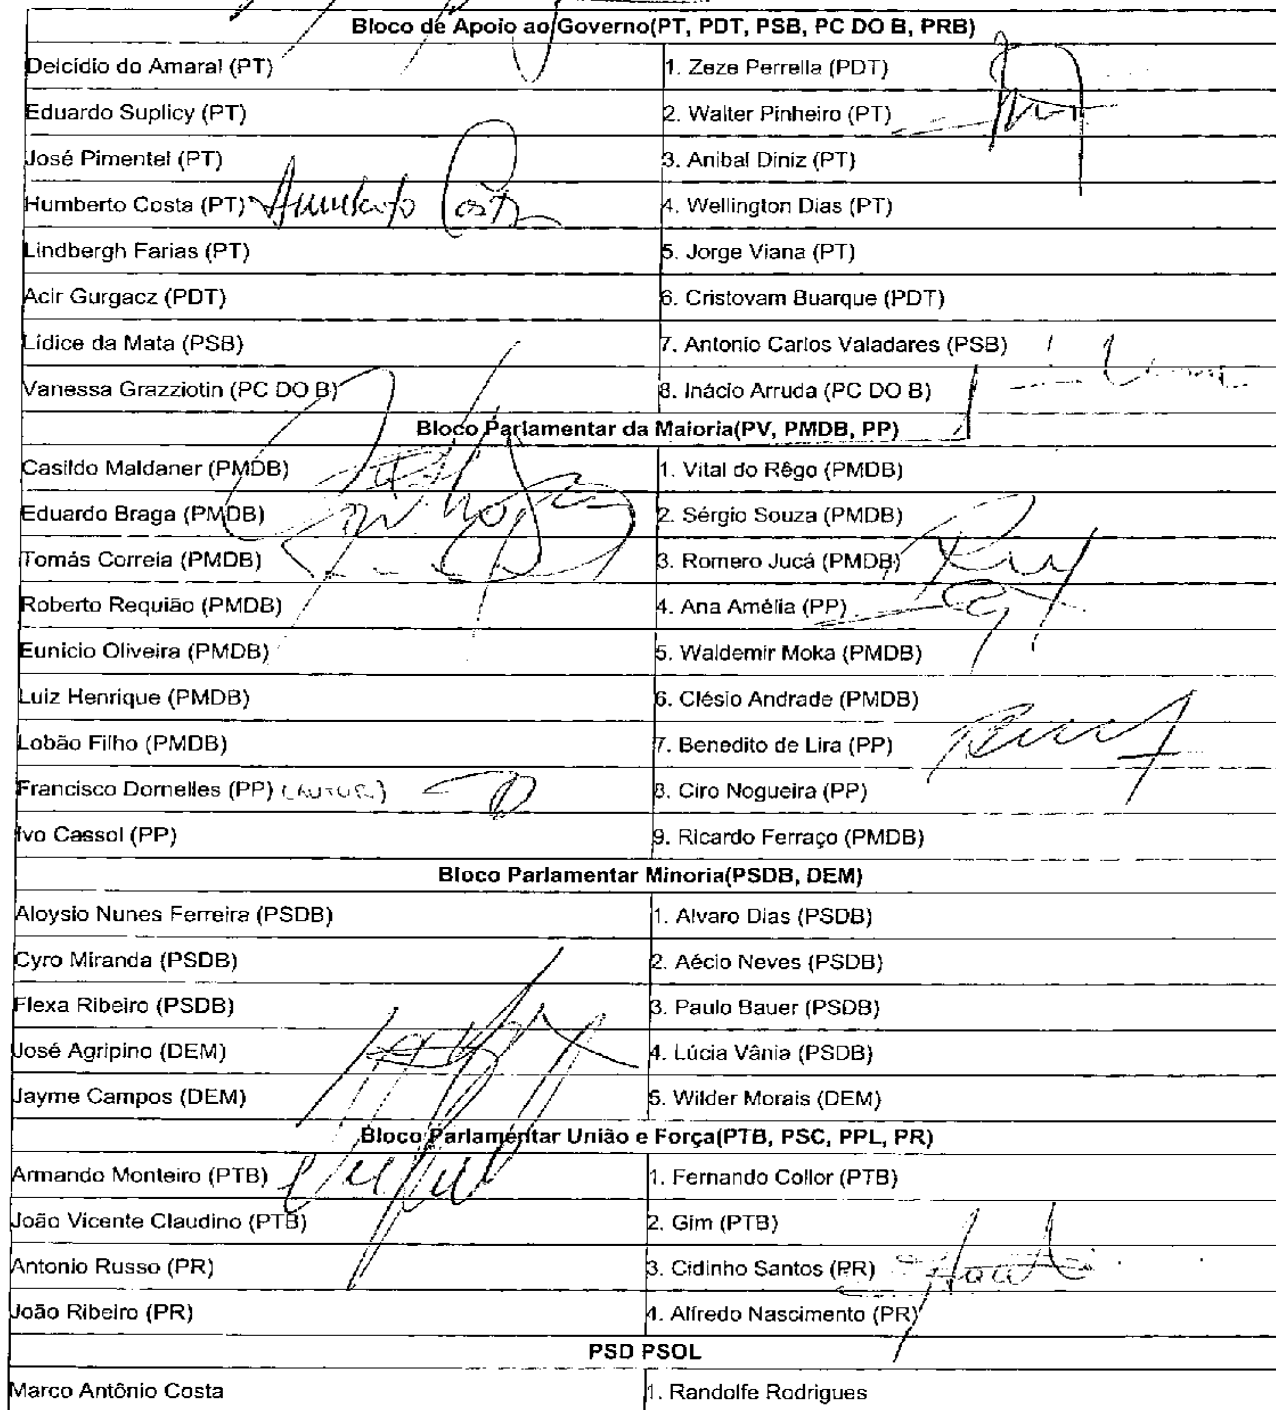 Bloco de Apoio ao Governo(PT, PDT, PSB, PC DO B, PRB)
Delcídio do Amaral (PT) 1. Zeze Perrella (PDT)
Eduardo Suplicy (PT) 2. Walter Pinheiro (PT)
José Pimentel (PT) 3. Anibal Diniz (PT)
Humberto Costa (PT) Humberto Costa 4. Wellington Dias (PT)
Lindbergh Farias (PT) 5. Jorge Viana (PT)
Acir Gurgacz (PDT) 6. Cristovam Buarque (PDT)
Lídice da Mata (PSB) 7. Antonio Carlos Valadares (PSB)
Vanessa Grazziotin (PC DO B) 8. Inácio Arruda (PC DO B)
Bloco Parlamentar da Maioria(PV, PMDB, PP)
Casildo Maldaner (PMDB) 1. Vital do Rêgo (PMDB)
Eduardo Braga (PMDB) 2. Sérgio Souza (PMDB)
Tomás Correia (PMDB) 3. Romero Jucá (PMDB)
Roberto Requião (PMDB) 4. Ana Amélia (PP)
Eunício Oliveira (PMDB) 5. Waldemir Moka (PMDB)
Luiz Henrique (PMDB) 6. Clésio Andrade (PMDB)
Lobão Filho (PMDB) 7. Benedito de Lira (PP)
Francisco Dornelles (PP) (AUTOR) 8. Ciro Nogueira (PP)
Ivo Cassol (PP) 9. Ricardo Ferraço (PMDB)
Bloco Parlamentar Minoria(PSDB, DEM)
Aloysio Nunes Ferreira (PSDB) 1. Alvaro Dias (PSDB)
Cyro Miranda (PSDB) 2. Aécio Neves (PSDB)
Flexa Ribeiro (PSDB) 3. Paulo Bauer (PSDB)
José Agripino (DEM) 4. Lúcia Vânia (PSDB)
Jayme Campos (DEM) 5. Wilder Morais (DEM)
Bloco Parlamentar União e Força(PTB, PSC, PPL, PR)
Armando Monteiro (PTB) 1. Fernando Collor (PTB)
João Vicente Claudino (PTB) 2. Gim (PTB)
Antonio Russo (PR) 3. Cidinho Santos (PR)
João Ribeiro (PR) 4. Alfredo Nascimento (PR)
PSD PSOL
Marco Antônio Costa 1. Randolfe Rodrigues